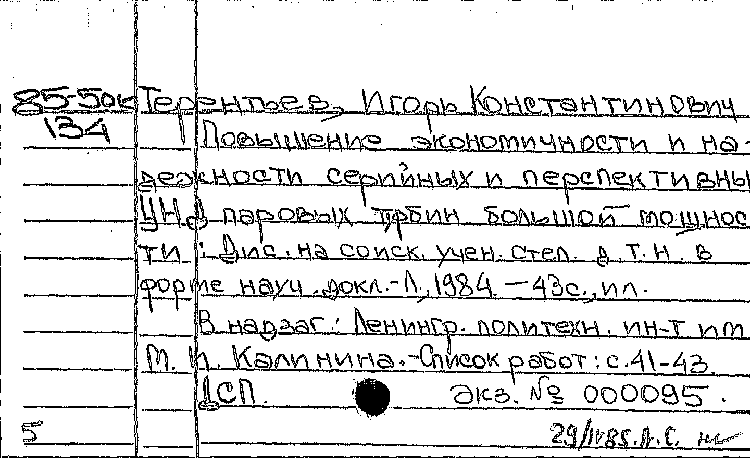 85-50к Терентьев, Игорь Константинович
134 Повышение экономичности и на-
дежности серийных и перспективны
ЦНД паровых турбин большой мощнос
ти : Дис. на соиск. учен. степ. д. т. н. в
форме науч. докл.-Л., 1984 - 43с., ил.
В надзаг.: Ленингр. политехн. ин-т им
М. И. Калинина.-Список работ: с.41-43
ДСП. экз. № 000095.
5 29/IV85. Л.С.